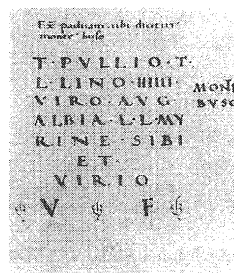 Est paduam ubi dicitur
monte buso
T · PVLLIO · T ·
L · LINO · IIIIII ·
VIRO · AVG
ALBIA · L · L · MY
RINE · SIBI
ET ·
VIRIO
V F
MONT
BVSO